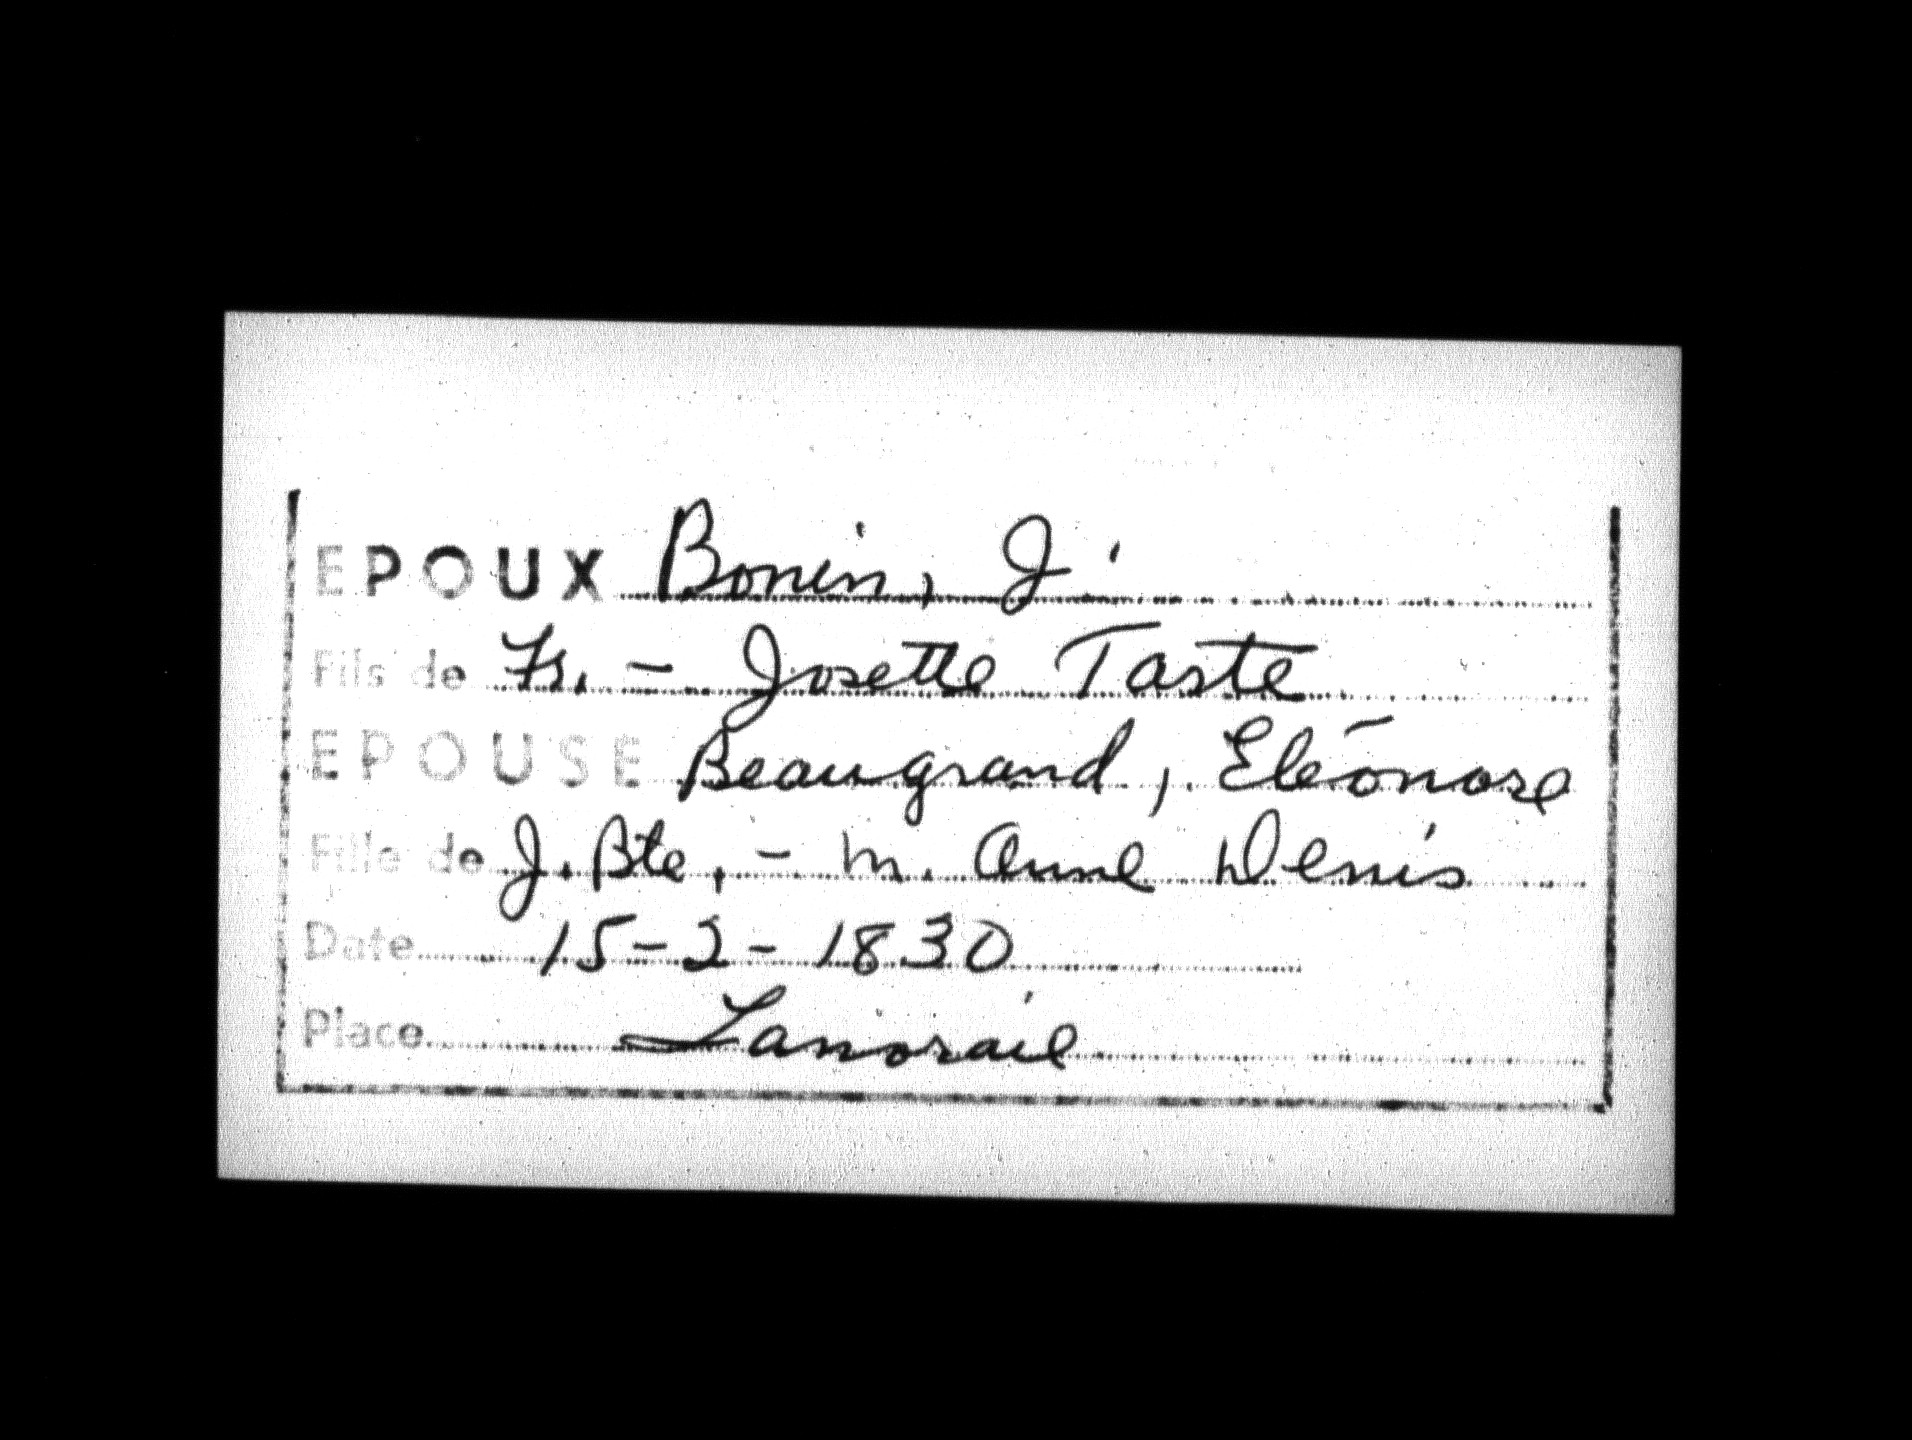 EPOUX Bonin, J'
Fils de Frs. - Josette Taste
EPOUSE Beaugrand, Eléonore
Fille de J. Bte. - M. Anne Denis
Date 15-2-1830
Place Lanoraie